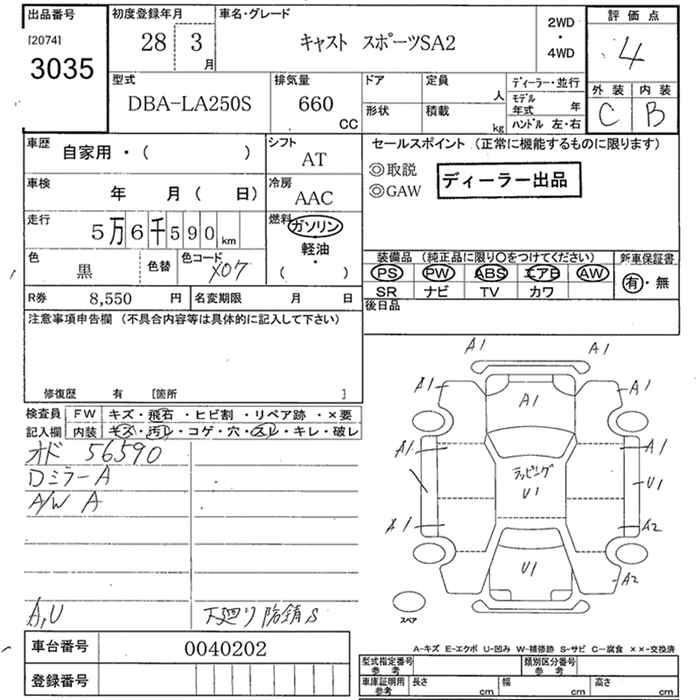 出品番号
[2074]
3035
初度登録年月
28 3
月
車名・グレード
キャスト スポーツSA2
2WD
・
4WD
評価点
4
外装 内装
C B
型式
DBA-LA250S
排気量
660
CC
ドア
定員
人
形状
積載
kg
ディーラー・並行
モデル
年式 年
ハンドル 左・右
車歴
自家用・( )
シフト
AT
セールスポイント (正常に機能するものに限ります)
◎取説
◎GAW
ディーラー出品
車検
年 月 ( 日)
冷房
AAC
走行
5万6千590km
燃料
ガソリン
軽油・
( ・ )
色
黒
色替
色コード
X07
装備品 (純正品に限り〇をつけてください)
PS PW ABS エアB AW
SR ナビ TV カワ
新車保証書
有・無
R券 8,550 円
名変期限 月 日
後日品
注意事項申告欄 (不具合内容等は具体的に記入して下さい)
修復歴 有 [箇所 ]
検査員
記入欄
FW キズ・飛石・ヒビ割・リペア跡・×要
内装 キズ・汚レ・コゲ・穴・スレ・キレ・破レ
オド 56590
Dミラー A
A/W A
A,U
下廻り防錆S
A1 A1
A1 A1 A1
A1 A1
ラッピング
U1
U1
A1 A2
U1
A2
スペア
車台番号 0040202
登録番号
A-キズ E-エクボ U-凹み W-補修跡 S-サビ C-腐食 ××-交換済
型式指定番号
参考
類別区分番号
参考
車庫証明用
参考
長さ cm
幅 cm
高さ cm